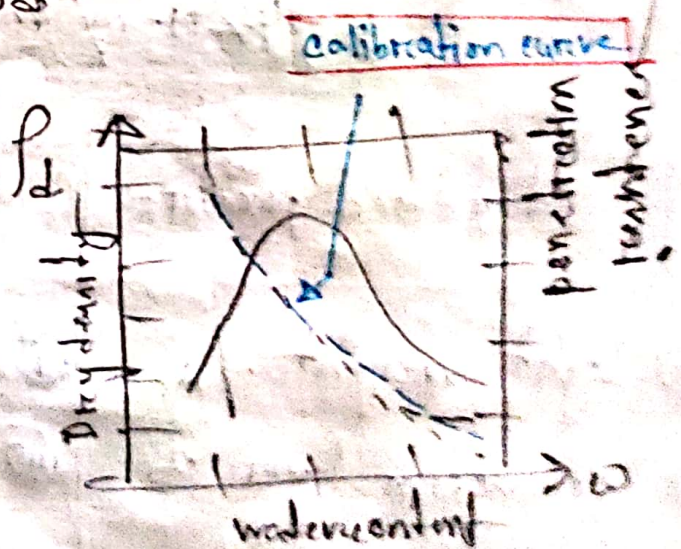 calibration curve
ρd
Dry density
penetration
ω
watercontent